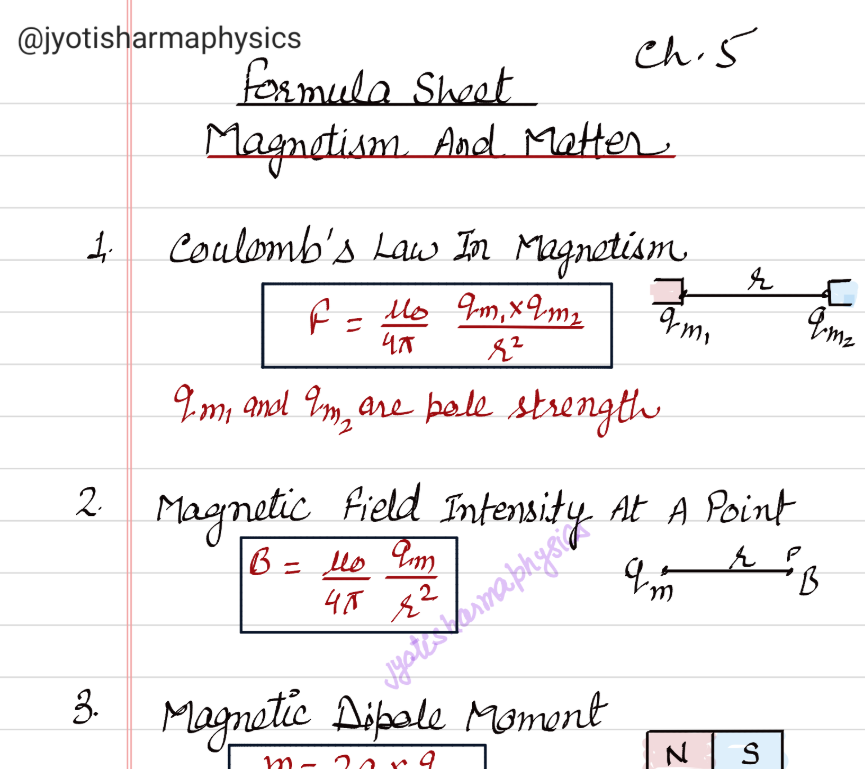 @jyotisharmaphysics
Ch. 5
Formula Sheet
Magnetism And Matter
1. Coulomb's Law In Magnetism
F = μ₀/4π qm₁×qm₂/r²
r
qm₁ qm₂
qm₁ and qm₂ are pole strength
2. Magnetic Field Intensity At A Point
B = μ₀/4π qm/r²
qm r P B
jyotisharmaphysics
3. Magnetic Dipole Moment
N S